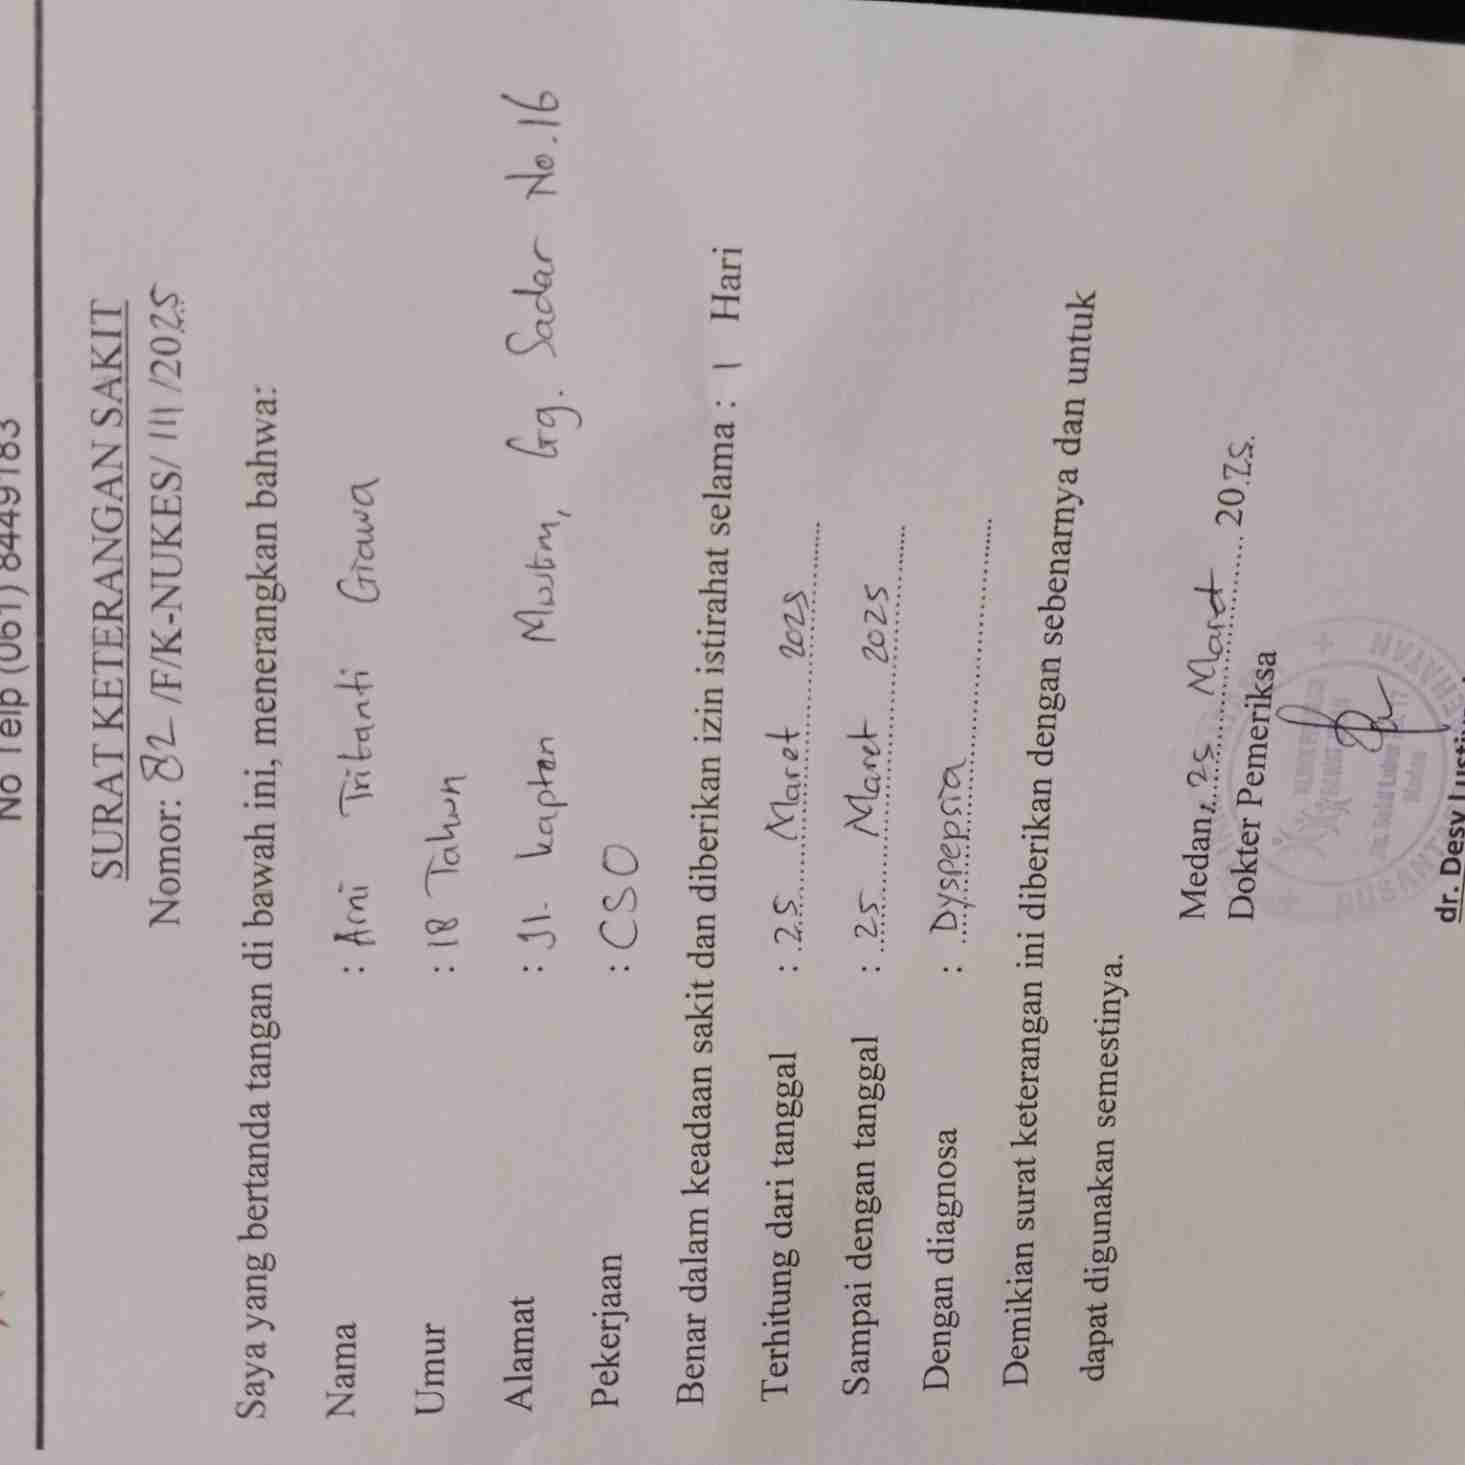 No Telp (061) 8449183
SURAT KETERANGAN SAKIT
Nomor: 82 /F/K-NUKES/ III /2025
Saya yang bertanda tangan di bawah ini, menerangkan bahwa:
Nama : Arni Tritanti Giawa
Umur : 18 Tahun
Alamat : Jl. Kapten Muslim, Gg. Sadar No.16
Pekerjaan : CSO
Benar dalam keadaan sakit dan diberikan izin istirahat selama : 1 Hari
Terhitung dari tanggal : 25 Maret 2025
Sampai dengan tanggal : 25 Maret 2025
Dengan diagnosa : Dyspepsia
Demikian surat keterangan ini diberikan dengan sebenarnya dan untuk
dapat digunakan semestinya.
Medan, 25 Maret 2025.
Dokter Pemeriksa
dr. Desy